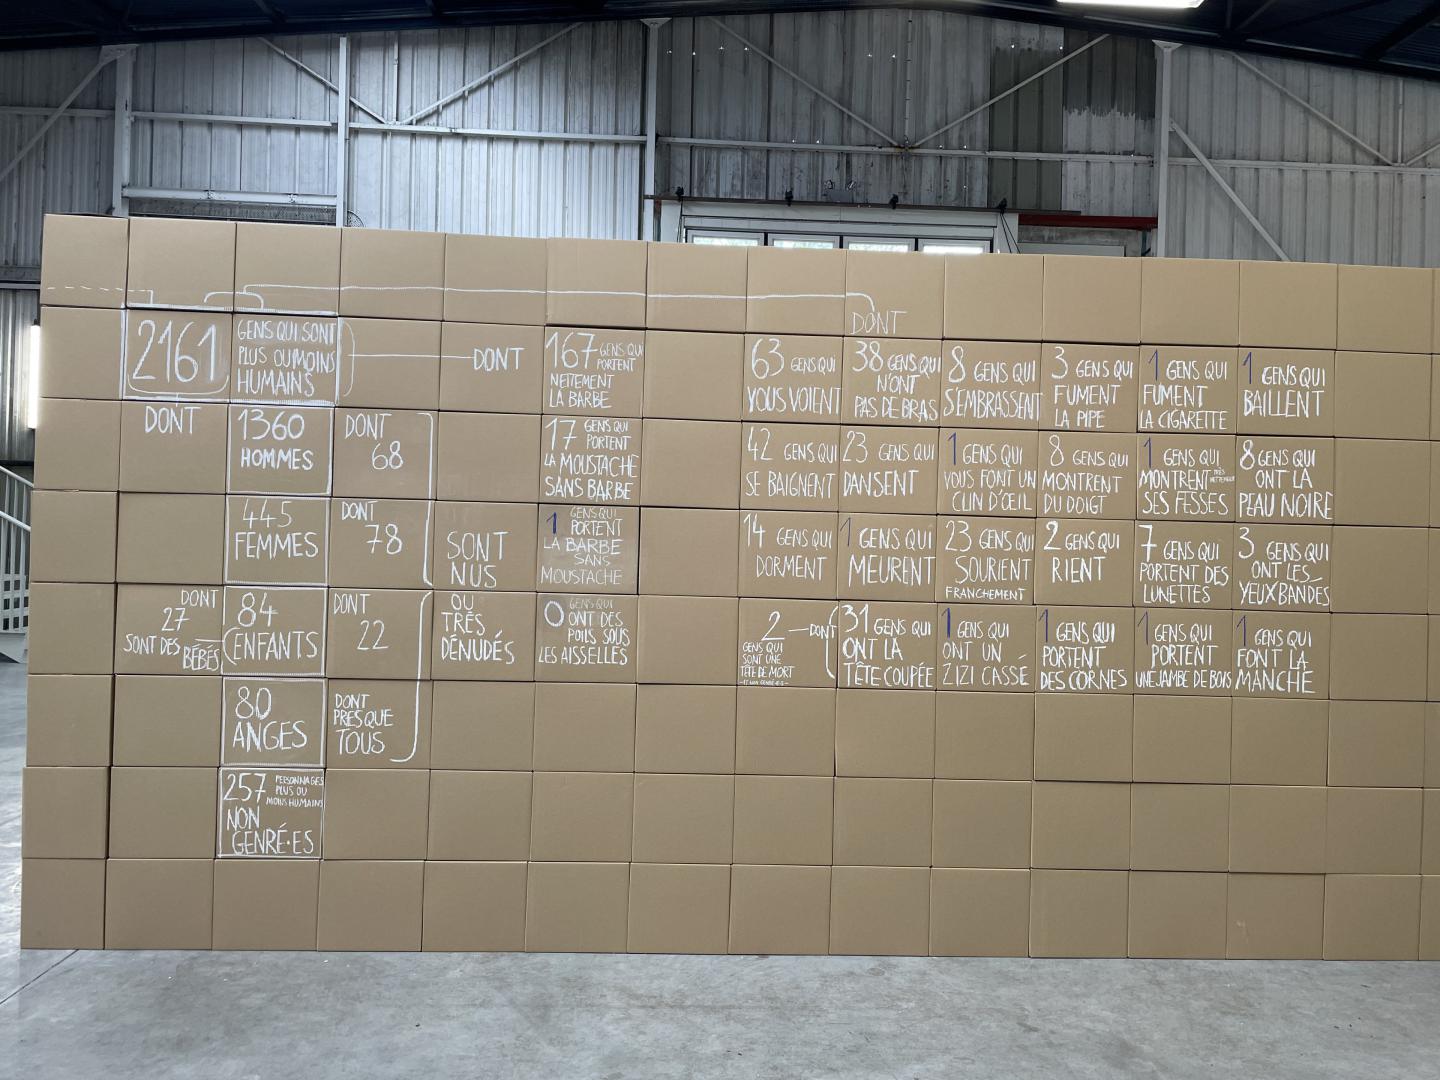 2161
GENS QUI SONT
PLUS OU MOINS
HUMAINS
DONT
167 GENS QUI
PORTENT
NETTEMENT
LA BARBE
17 GENS QUI
PORTENT
LA MOUSTACHE
SANS BARBE
1 GENS QUI
PORTENT
LA BARBE
SANS
MOUSTACHE
0 GENS QUI
ONT DES
POILS SOUS
LES AISSELLES
DONT
1360
HOMMES
DONT
68
445
FEMMES
DONT
78
SONT
NUS
OU
TRÈS
DÉNUDÉS
84
ENFANTS
DONT
22
DONT
27
SONT DES
BÉBÉS
80
ANGES
DONT
PRESQUE
TOUS
257 PERSONNAGES
PLUS OU
MOINS HUMAINS
NON
GENRÉ·ES
DONT
63 GENS QUI
VOUS VOIENT
38 GENS QUI
N'ONT
PAS DE BRAS
8 GENS QUI
S'EMBRASSENT
3 GENS QUI
FUMENT
LA PIPE
1 GENS QUI
FUMENT
LA CIGARETTE
1 GENS QUI
BAILLENT
42 GENS QUI
SE BAIGNENT
23 GENS QUI
DANSENT
1 GENS QUI
VOUS FONT UN
CLIN D'ŒIL
8 GENS QUI
MONTRENT
DU DOIGT
1 GENS QUI
MONTRENT TRÈS
NETTEMENT
SES FESSES
8 GENS QUI
ONT LA
PEAU NOIRE
14 GENS QUI
DORMENT
1 GENS QUI
MEURENT
23 GENS QUI
SOURIENT
FRANCHEMENT
2 GENS QUI
RIENT
7 GENS QUI
PORTENT DES
LUNETTES
3 GENS QUI
ONT LES
YEUX BANDÉS
2
GENS QUI
SONT UNE
TÊTE DE MORT
DONT
31 GENS QUI
ONT LA
TÊTE COUPÉE
1 GENS QUI
ONT UN
ZIZI CASSÉ
1 GENS QUI
PORTENT
DES CORNES
1 GENS QUI
PORTENT
UNE JAMBE DE BOIS
1 GENS QUI
FONT LA
MANCHE